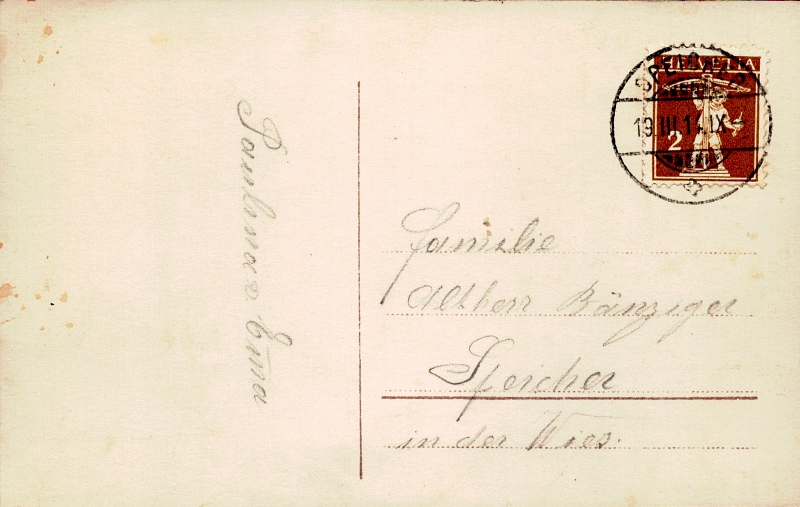 Paulina & Emma
HELVETIA
2
SPEICHER
19.III.14.IX
Familie
Altherr Bänziger
Speicher
in der Wies.